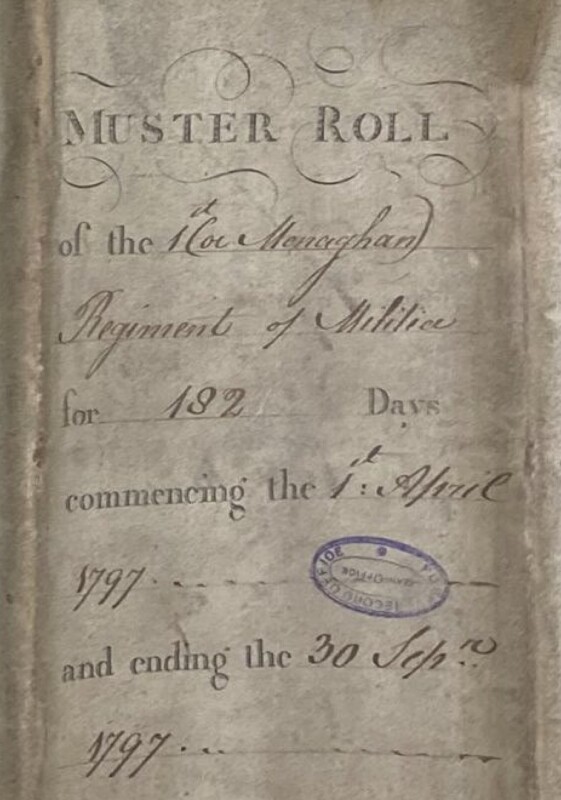 MUSTER ROLL
of the 1st (or Monaghan)
Regiment of Militia
for 182 Days
commencing the 1st: April
1797
RECORD OFFICE
and ending the 30 Sepr
1797